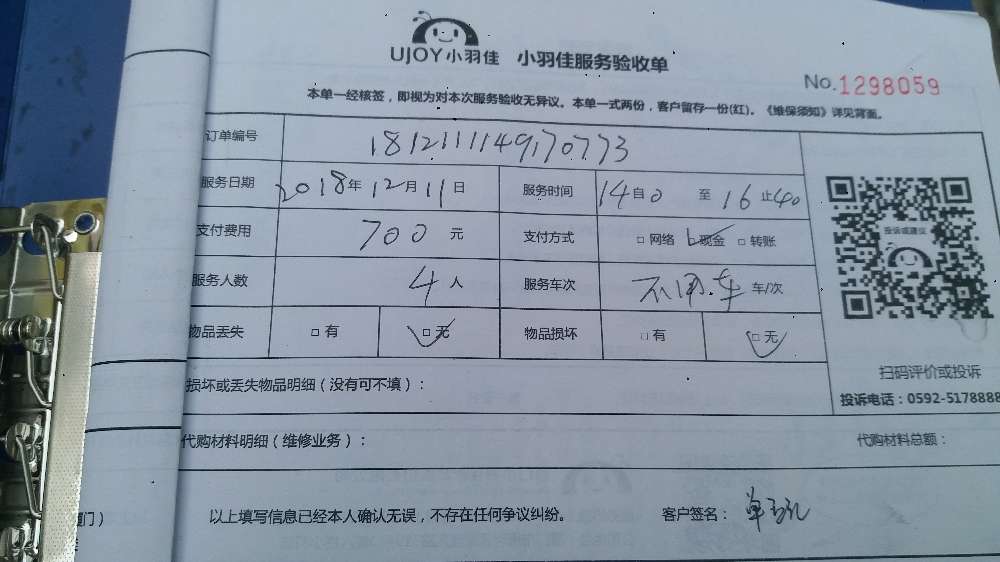 UJOY小羽佳 小羽佳服务验收单
No.1298059
本单一经核签，即视为对本次服务验收无异议。本单一式两份，客户留存一份(红)。《维保须知》详见背面。
订单编号 1812111149170773
服务日期 2018年12月11日 服务时间 14自0 至 16止40
支付费用 700 元 支付方式 □网络 □现金 □转账
投诉或建议
服务人数 4人 服务车次 不用车 车/次
物品丢失 □有 □无 物品损坏 □有 □无
扫码评价或投诉
损坏或丢失物品明细（没有可不填）：
投诉电话：0592-5178888
代购材料明细（维修业务）： 代购材料总额：
门） 以上填写信息已经本人确认无误，不存在任何争议纠纷。 客户签名：